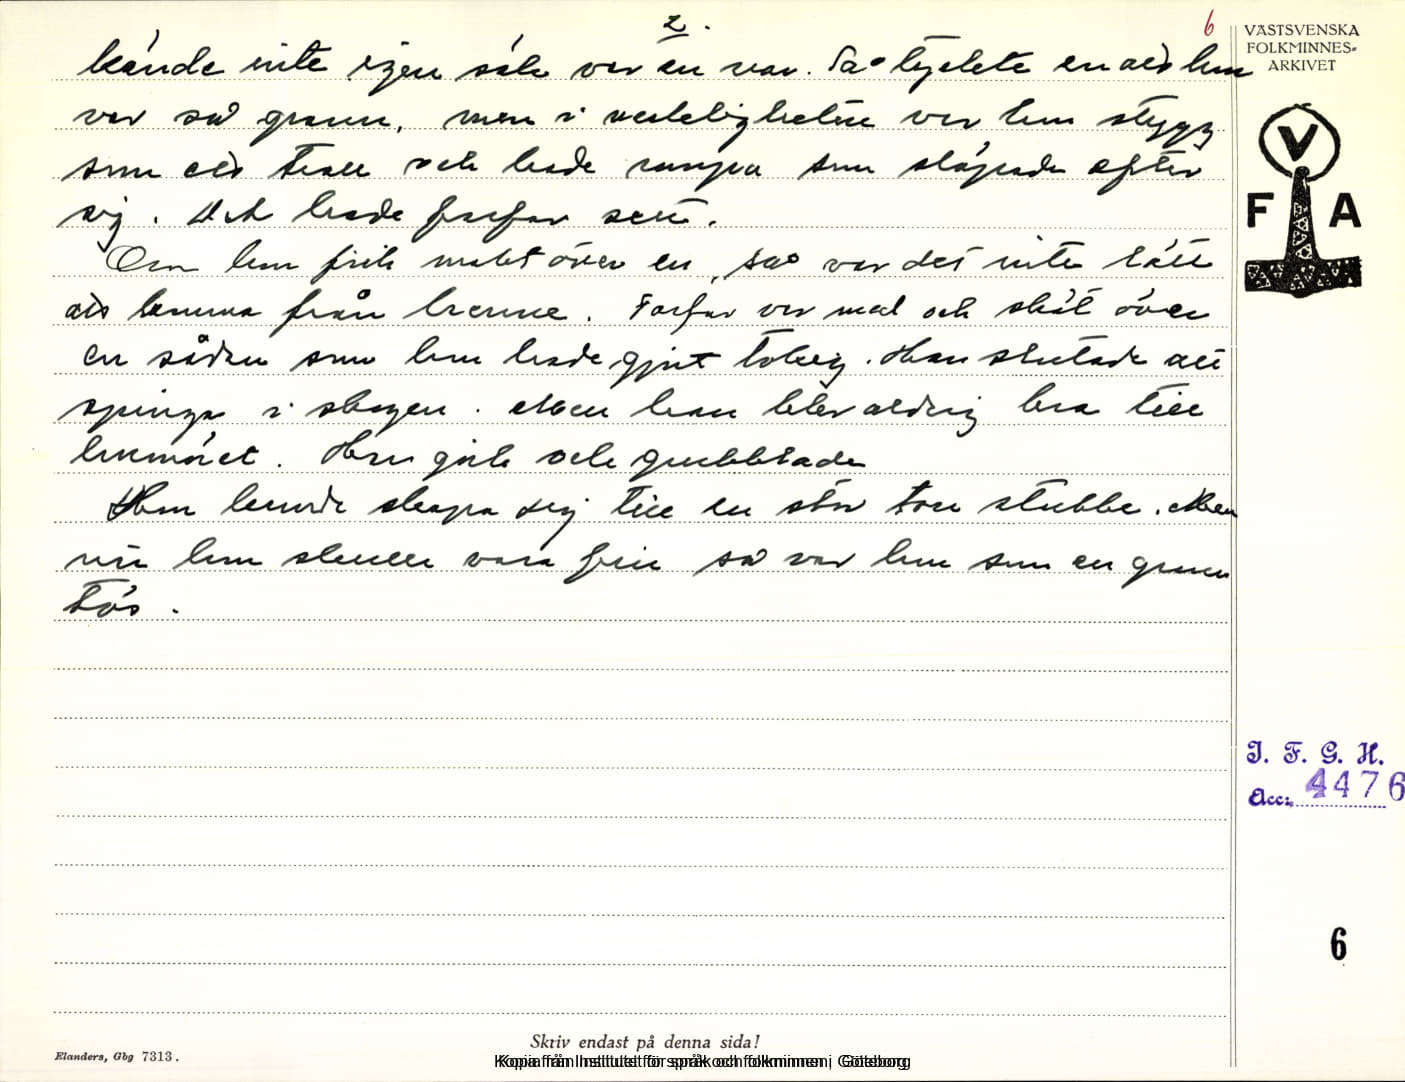 2.
6
kände inte igen såk var en var. Så tyckte en att hon
var så grann, men i verkeligheten var hon stygg
som ett troll och hade rumpa som släpade efter
sig. Det hade farfar sett.
Om hon fick makt över en, så var det inte lätt
att komma från henne. Farfar var med och sköt över
en sådan som hon hade gjort tokig. Han slutade att
springa i skogen. Men han blev aldrig bra till
humöret. Han gick och grubblade
Hon kunde skapa sig till en stor torr stubbe. Men
när hon skulle vara fin så var hon som en grann
tös.
VÄSTSVENSKA
FOLKMINNES-
ARKIVET
V
F A
I. F. G. H.
Acc: 4476
6
Skriv endast på denna sida!
Elanders, Gbg 7313.
Kopia från Institutet för språk och folkminnen i Göteborg